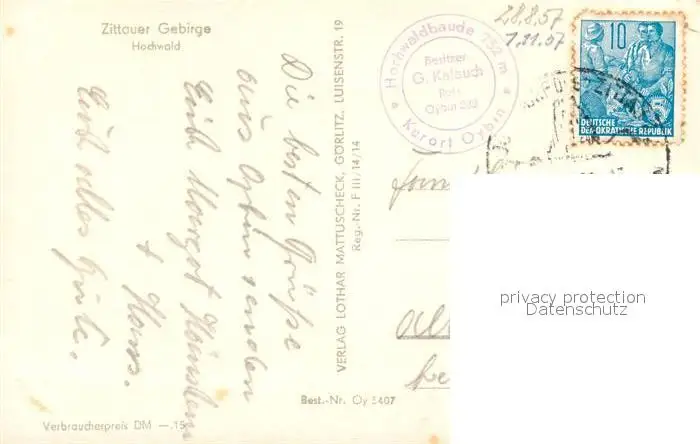 Zittauer Gebirge
Hochwald
Die besten Grüße
aus Oybin senden
Euch Margot
+ Hans.
Euch alles Gute.
Verbraucherpreis DM —.15
VERLAG LOTHAR MATTUSCHECK, GÖRLITZ, LUISENSTR. 19
Reg.-Nr. F III/14/14
Best.-Nr. Oy 5407
Hochwaldbaude 752 m
Besitzer
G. Kalauch
Oybin
Kurort Oybin
28.8.57
1.11.57
10
DEUTSCHE
DEMOKRATISCHE REPUBLIK
privacy protection
Datenschutz